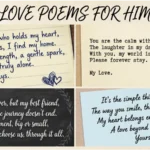 LOVE POEMS FOR HIM
who holds my heart,
s, I find my home.
ength, a gentle spark,
truly alone.
ays.
You are the calm with
The laughter in my da
With you, my world is
Please forever stay.
My Love.
er, but my best friend,
e journey doesn't end.
ment, big or small,
choose us, through it all.
It's the simple thi
The way you smile, th
My heart belongs
A love beyond
Yours